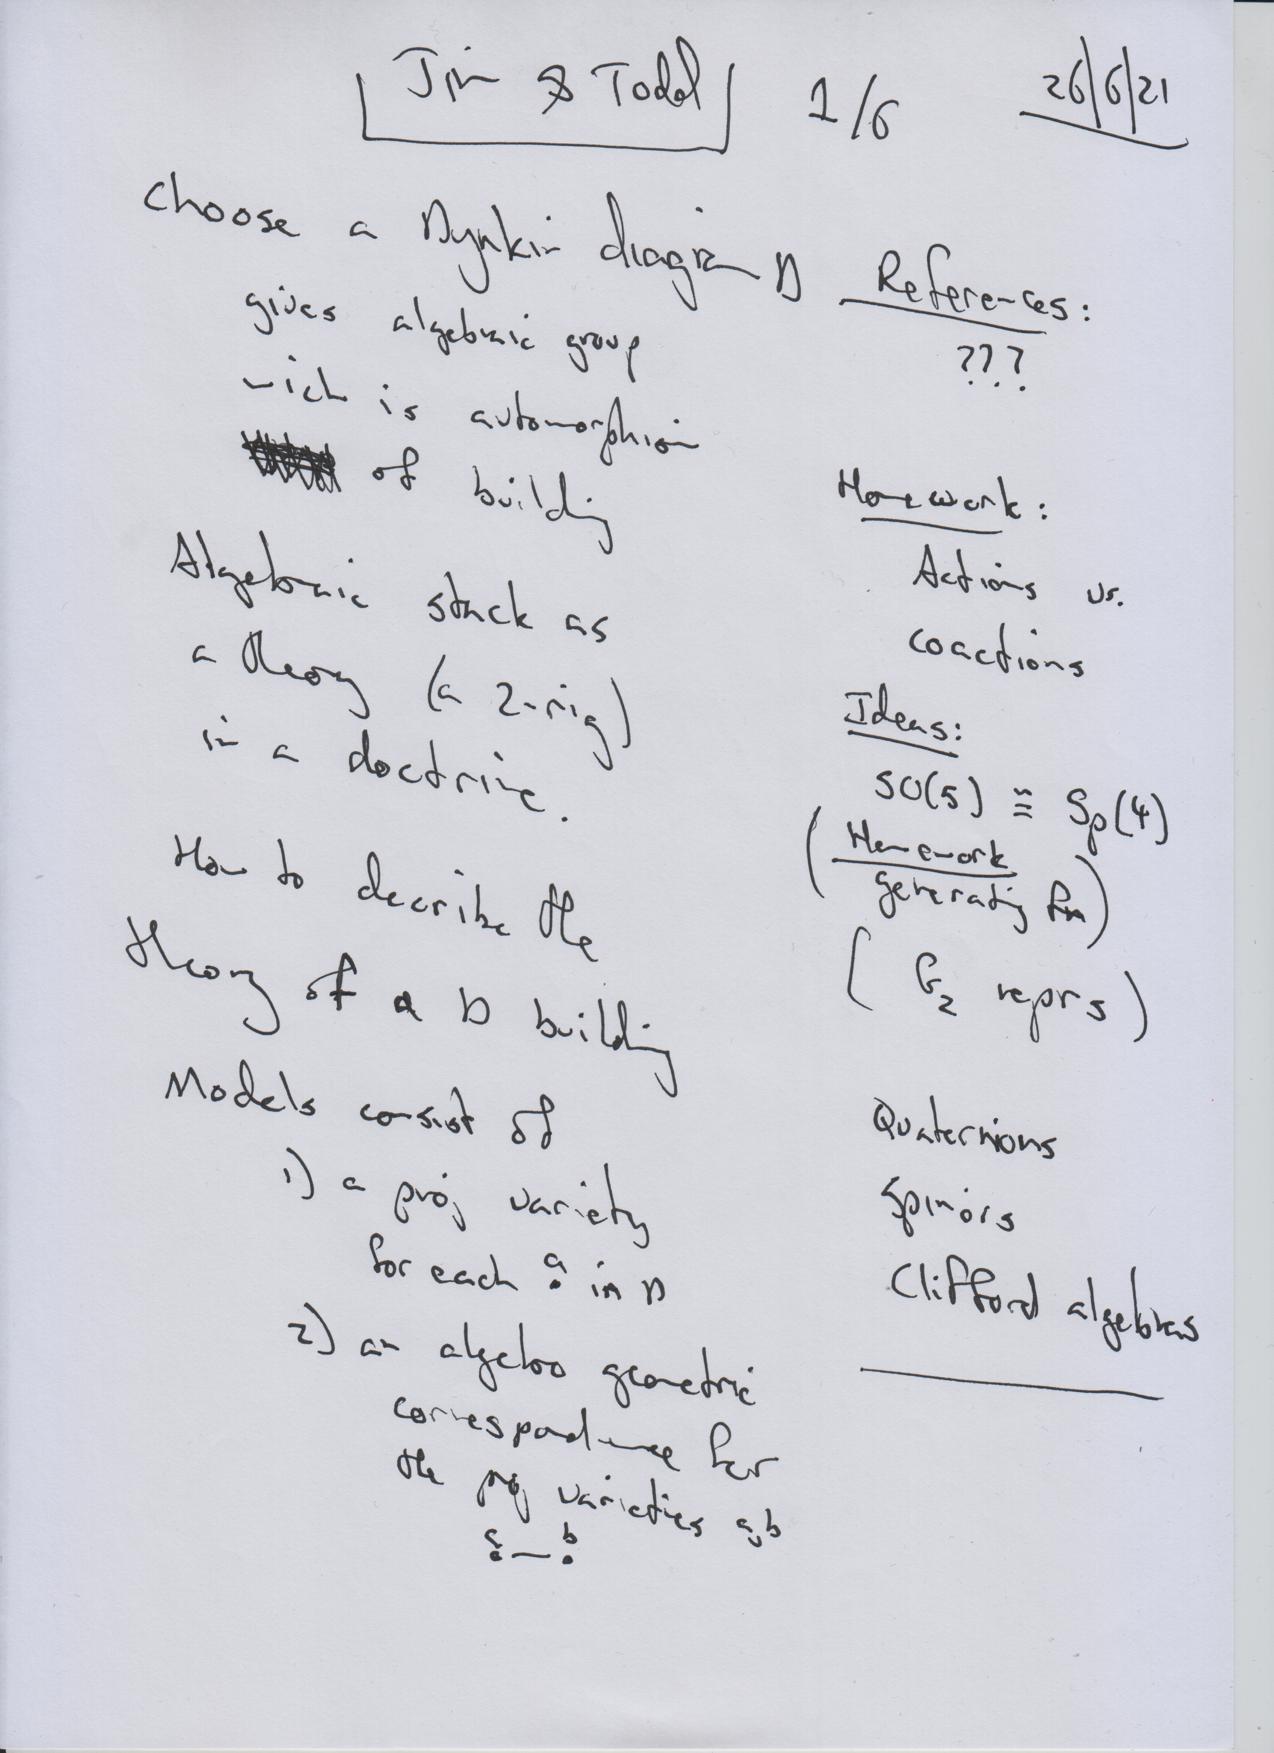 Jim & Todd 1/6 26/6/21
Choose a Dynkin diagram D
gives algebraic group
wich is automorphism
of building
Algebraic stack as
a theory (a 2-rig)
in a doctrine.
How to decribe the
theory of a D building
Models consist of
1) a proj variety
for each a in D
2) an algebro geometric
correspondence for
the proj varieties a, b
a b
References:
???
Homework:
Actions vs.
coactions
Ideas:
SO(5) ≅ Sp(4)
(Homework
generating fn)
(G₂ reprs)
Quaternions
Spinors
Clifford algebras